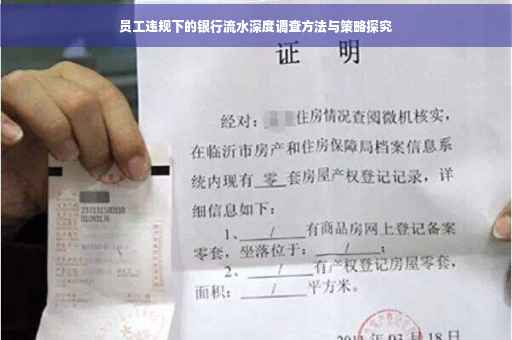 员工违规下的银行流水深度调查方法与策略探究
证 明
经对：住房情况查阅微机核实，
在临沂市房产和住房保障局档案信息系
统内现有 零 套房屋产权登记记录，详
细信息如下：
1、 / 有商品房网上登记备案
零套，坐落位于： / ；
2、 / 有产权登记房屋零套，
面积： / 平方米。